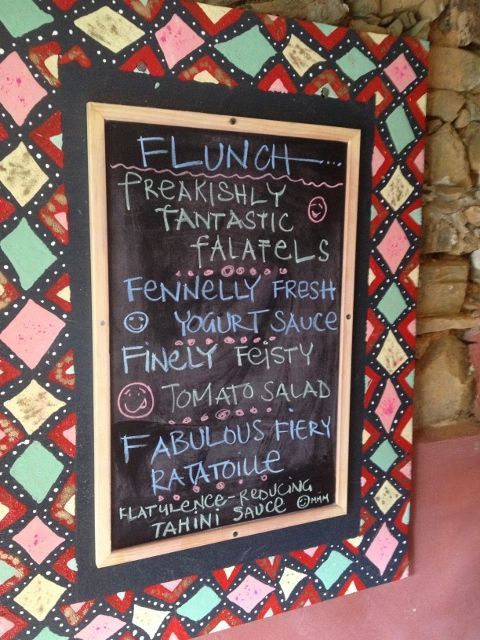 FLUNCH...
FREAKISHLY
FANTASTIC
FALAFELS
FENNELLY FRESH
YOGURT SAUCE
FINELY FEISTY
TOMATO SALAD
FABULOUS FIERY
RATATOILLE
FLATULENCE-REDUCING
TAHINI SAUCE MMM